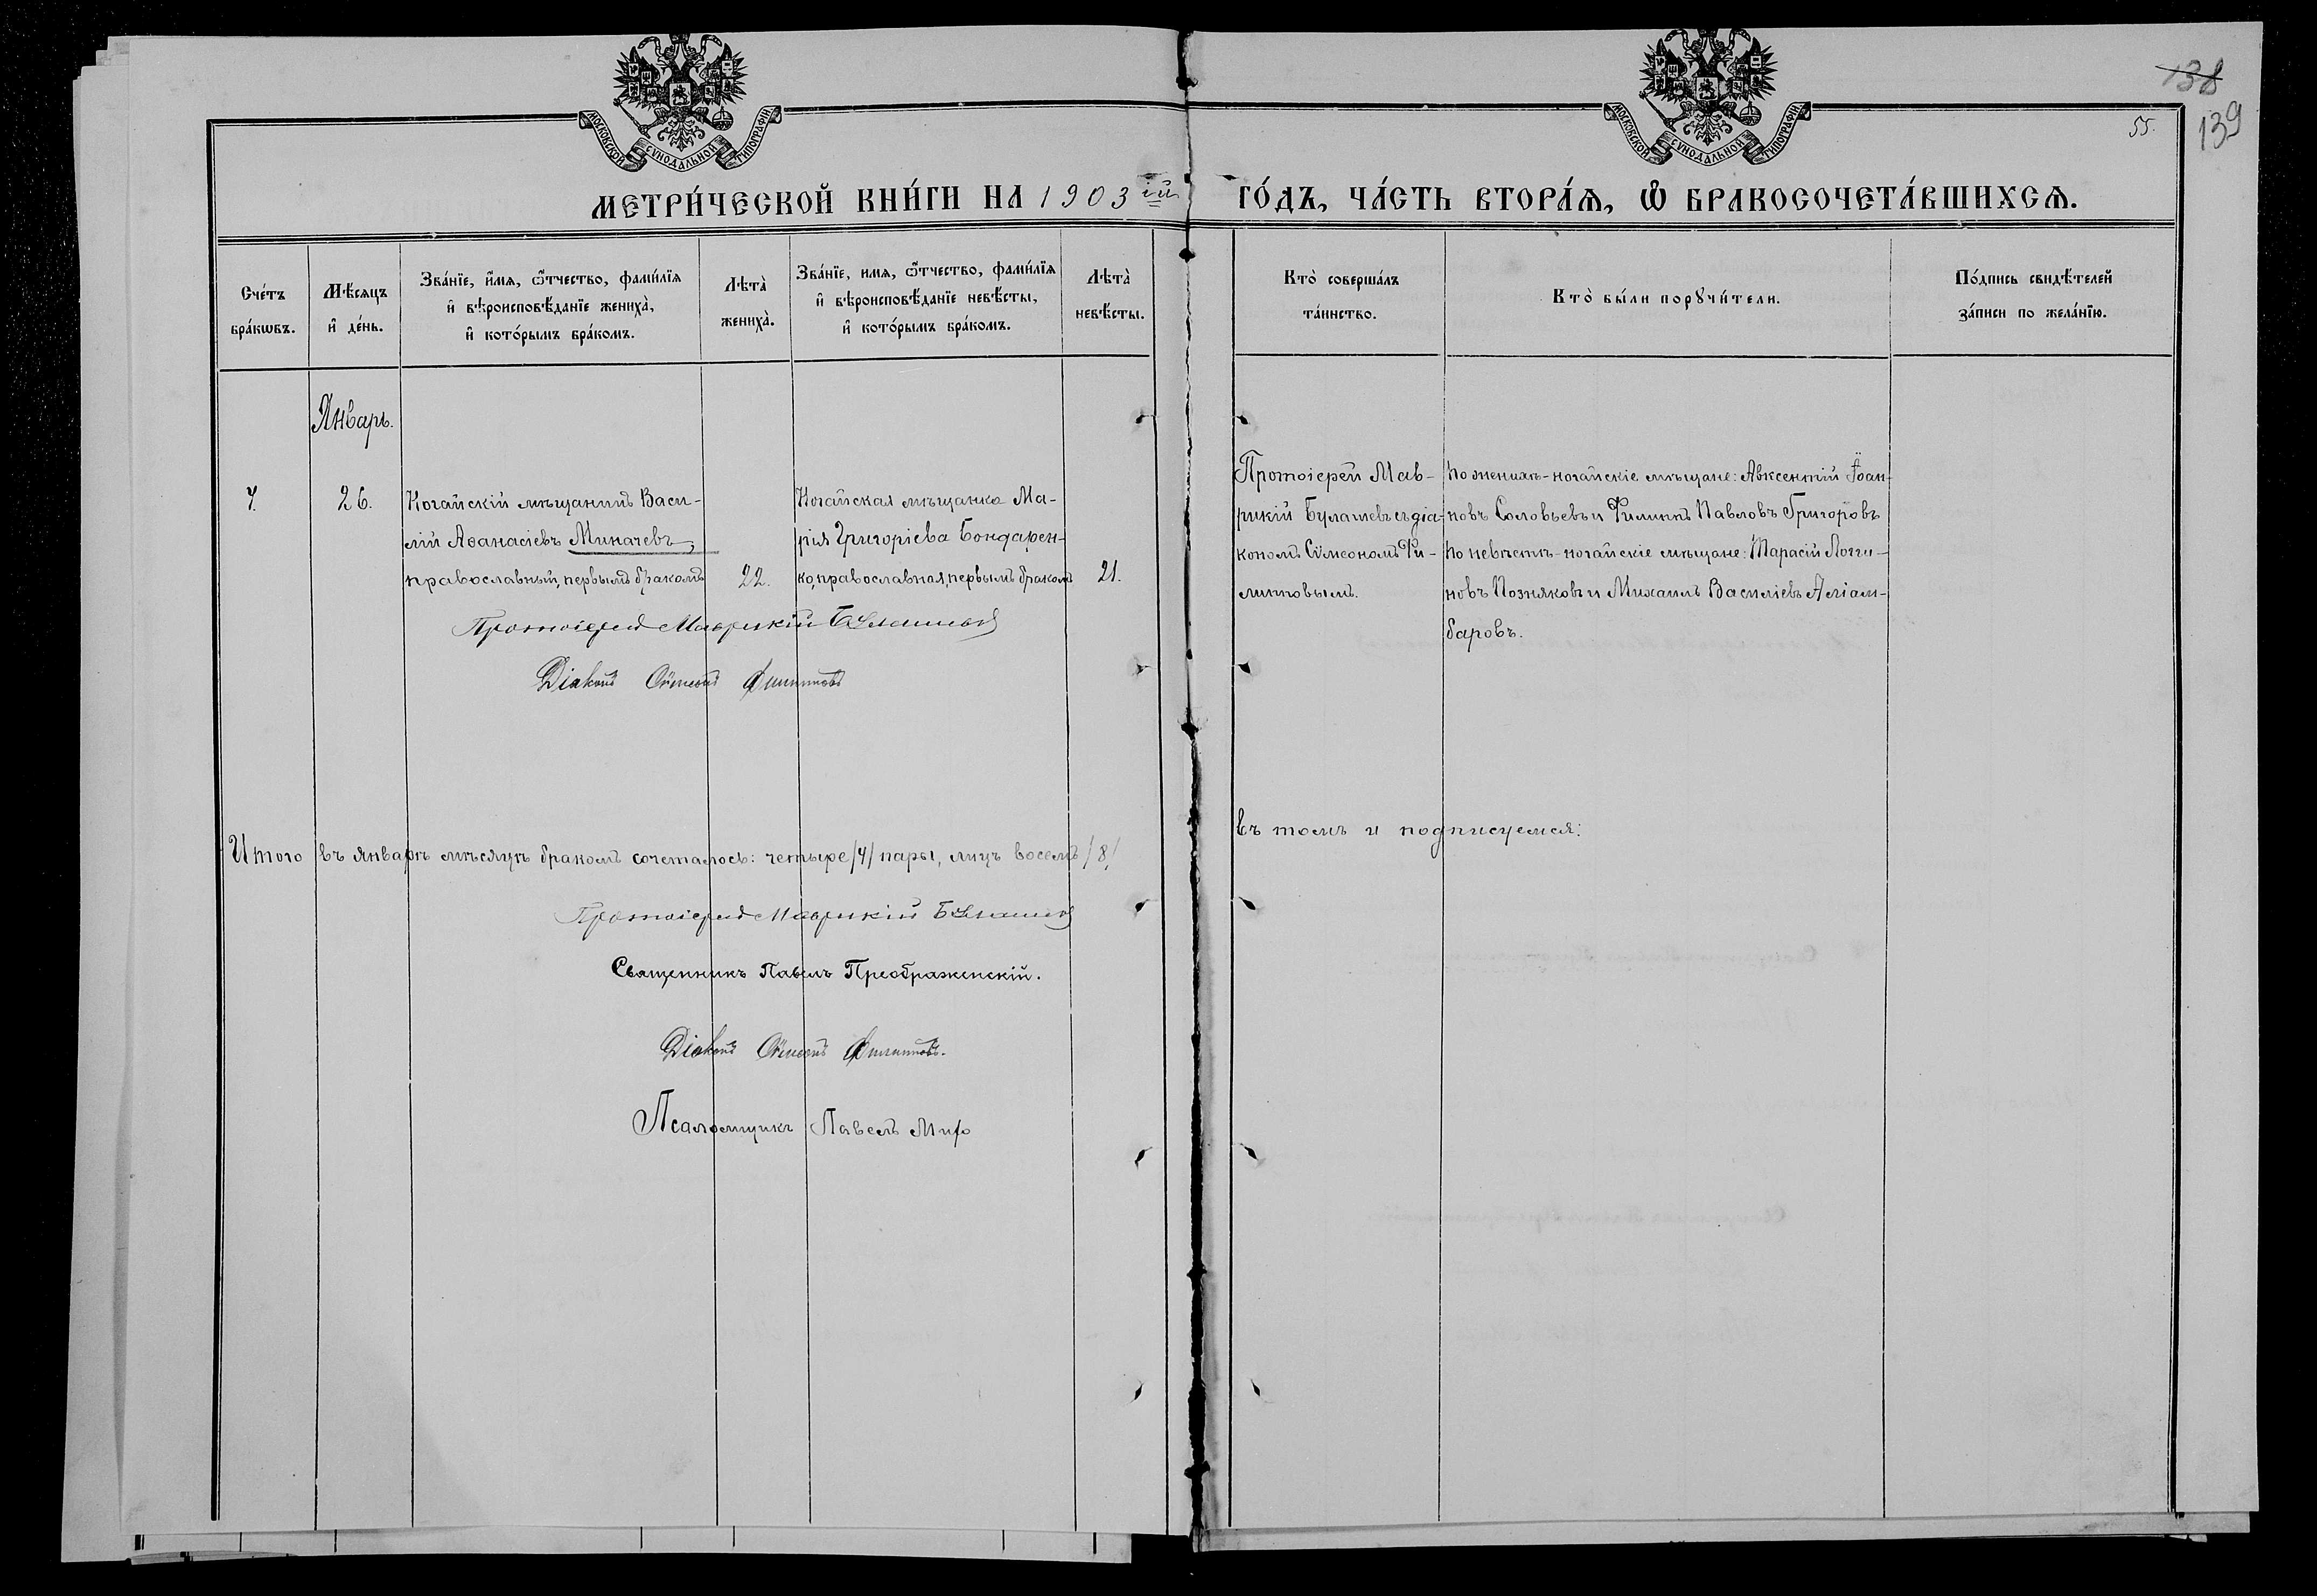 МОСКОВСКОЙ СѴНОДАЛЬНОЙ ТИПОГРАФІИ
МОСКОВСКОЙ СѴНОДАЛЬНОЙ ТИПОГРАФІИ
138
139
55.
МЕТРИ́ЧЕСКОЙ КНИ́ГИ НА 1903 ій ГО́ДЪ, ЧА́СТЬ ВТОРА́Ѧ, Ѿ БРАКОСОЧЕТА́ВШИХСѦ.
Сче́тъ бра́кѡвъ.
Мѣ́сѧцъ и҆ де́нь.
Зва́нїе, и҆́мѧ, ѻ҆́тчество, фами́лїѧ
и҆ вѣроисповѣ́данїе жениха̀,
и҆ кото́рымъ бра́комъ.
Лѣта̀ жениха̀.
Зва́нїе, имѧ, ѻ҆́тчество, фами́лїѧ
и҆ вѣроисповѣ́данїе невѣ́сты,
и҆ кото́рымъ бра́комъ.
Лѣта̀ невѣ́сты.
Кто̀ соверша́лъ
та́инство.
Кто̀ бы́ли порꙋчи́тели.
По́дпись свидѣ́телей
за́писи по жела́нїю.
Январь.
4.
26.
Ногайскій мѣщанинъ Васи-
лій Аѳанасіевъ Миначевъ,
православный, первымъ бракомъ
22.
Ногайская мѣщанка Ма-
рія Григоріева Бондарен-
ко, православная, первымъ бракомъ
21.
Протоіерей Мав-
рикій Булашевъ съ діа-
кономъ Сѵмеономъ Фи-
липповымъ.
По женихѣ - ногайскіе мѣщане: Авксентій Іоан-
новъ Соловьевъ и Филиппъ Павловъ Григоровъ
По невѣстѣ - ногайскіе мѣщане: Тарасій Логги-
новъ Позняковъ и Михаилъ Василіевъ Аліам-
баровъ.
Протоіерей Маврикій Булашевъ
Діаконъ Сѵмеонъ Филипповъ
Итого въ январѣ мѣсяцѣ бракомъ сочеталось: четыре /4/ пары, лицъ восемь /8/
въ томъ и подписуемся:
Протоіерей Маврикій Булашевъ
Священникъ Павелъ Преображенскій.
Діаконъ Сѵмеонъ Филипповъ.
Псаломщикъ Павелъ